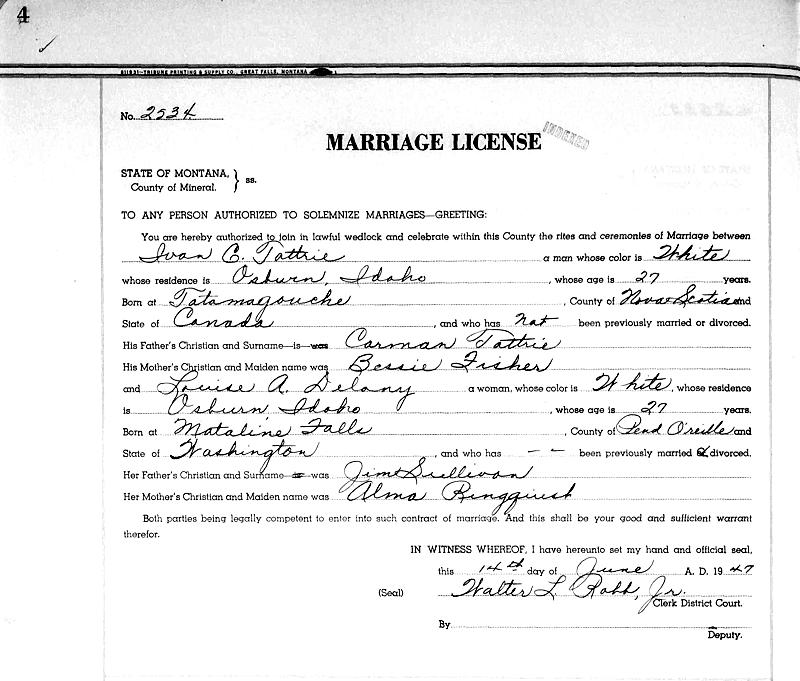 4
811931—TRIBUNE PRINTING & SUPPLY CO., GREAT FALLS, MONTANA
No. 2534
MARRIAGE LICENSE
INDEXED
STATE OF MONTANA, } ss.
County of Mineral.
TO ANY PERSON AUTHORIZED TO SOLEMNIZE MARRIAGES—GREETING:
You are hereby authorized to join in lawful wedlock and celebrate within this County the rites and ceremonies of Marriage between
Ivan C. Tattrie a man whose color is White
whose residence is Osburn, Idaho, whose age is 27 years.
Born at Tatamagouche, County of Nova Scotia and
State of Canada, and who has not been previously married or divorced.
His Father's Christian and Surname is was Carman Tattrie
His Mother's Christian and Maiden name was Bessie Fisher
and Louise A. Delany a woman, whose color is White, whose residence
is Osburn, Idaho, whose age is 27 years.
Born at Mataline Falls, County of Pend O'reille and
State of Washington, and who has – – been previously married & divorced.
Her Father's Christian and Surname is was Jim Sullivan
Her Mother's Christian and Maiden name was Alma Ringquist
Both parties being legally competent to enter into such contract of marriage. And this shall be your good and sufficient warrant
therefor.
IN WITNESS WHEREOF, I have hereunto set my hand and official seal,
this 14th day of June A. D. 1947
(Seal) Walter L. Robb, Jr.
Clerk District Court.
By
Deputy.